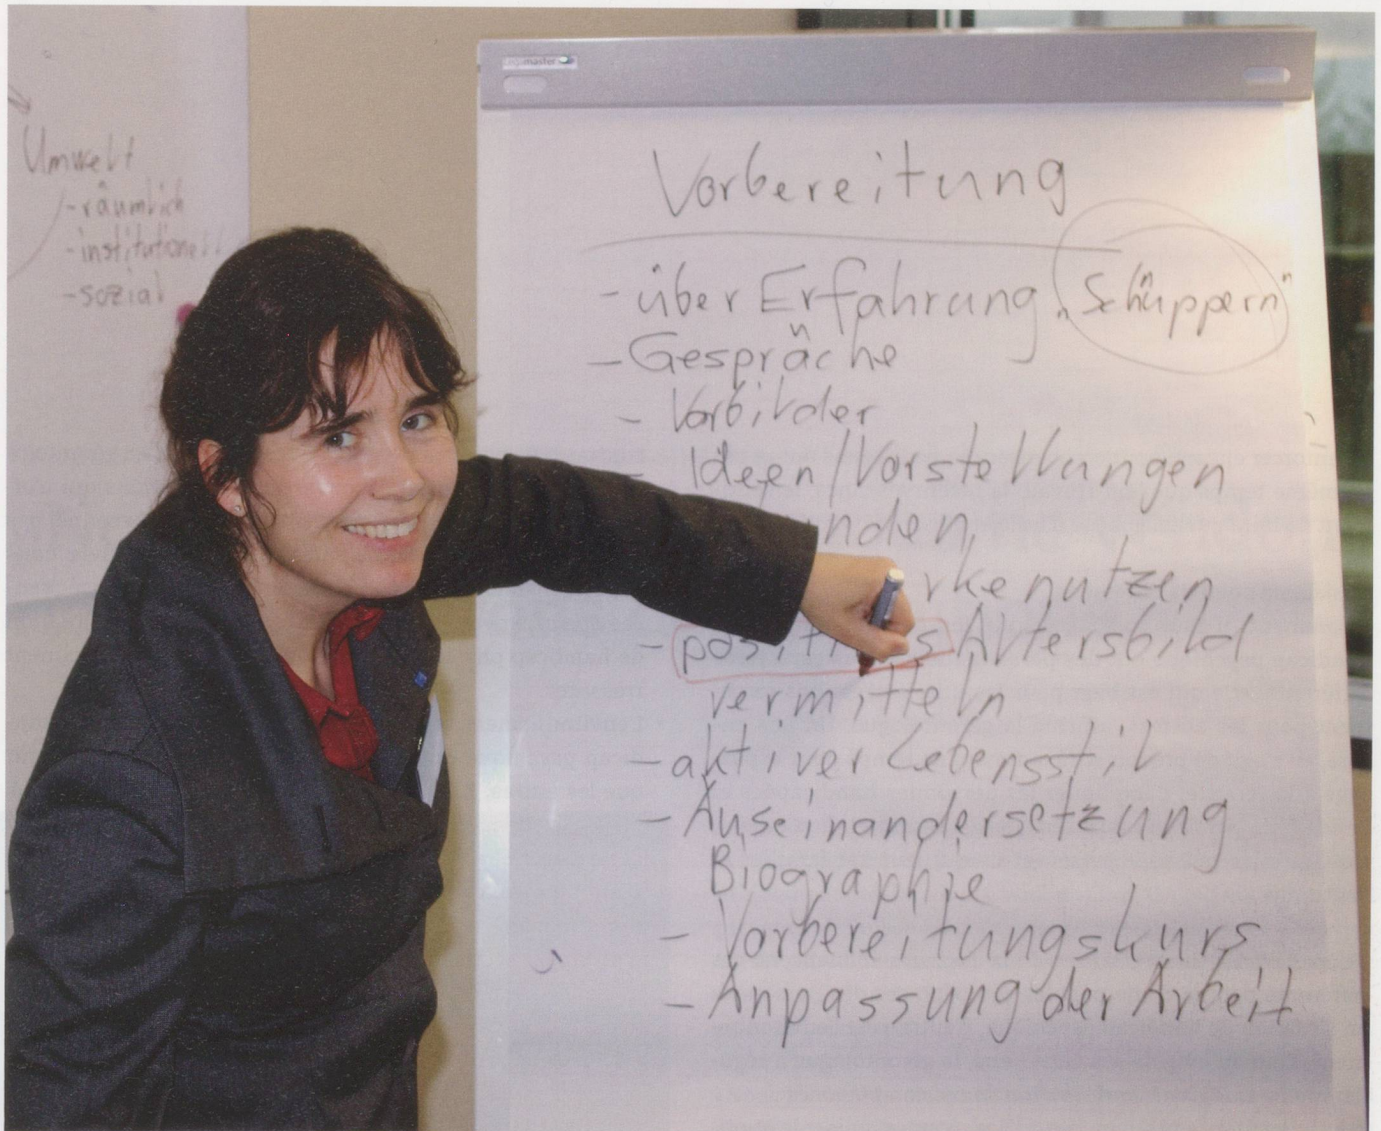 Legamaster
Umwelt
- räumlich
- institutionell
- sozial
Vorbereitung
- über Erfahrung „Schnuppern"
- Gespräche
- Vorbilder
- Ideen/Vorstellungen
nutzen
- positives Altersbild
vermitteln
- aktiver Lebensstil
- Auseinandersetzung
Biographie
- Vorbereitungskurs
- Anpassung der Arbeit